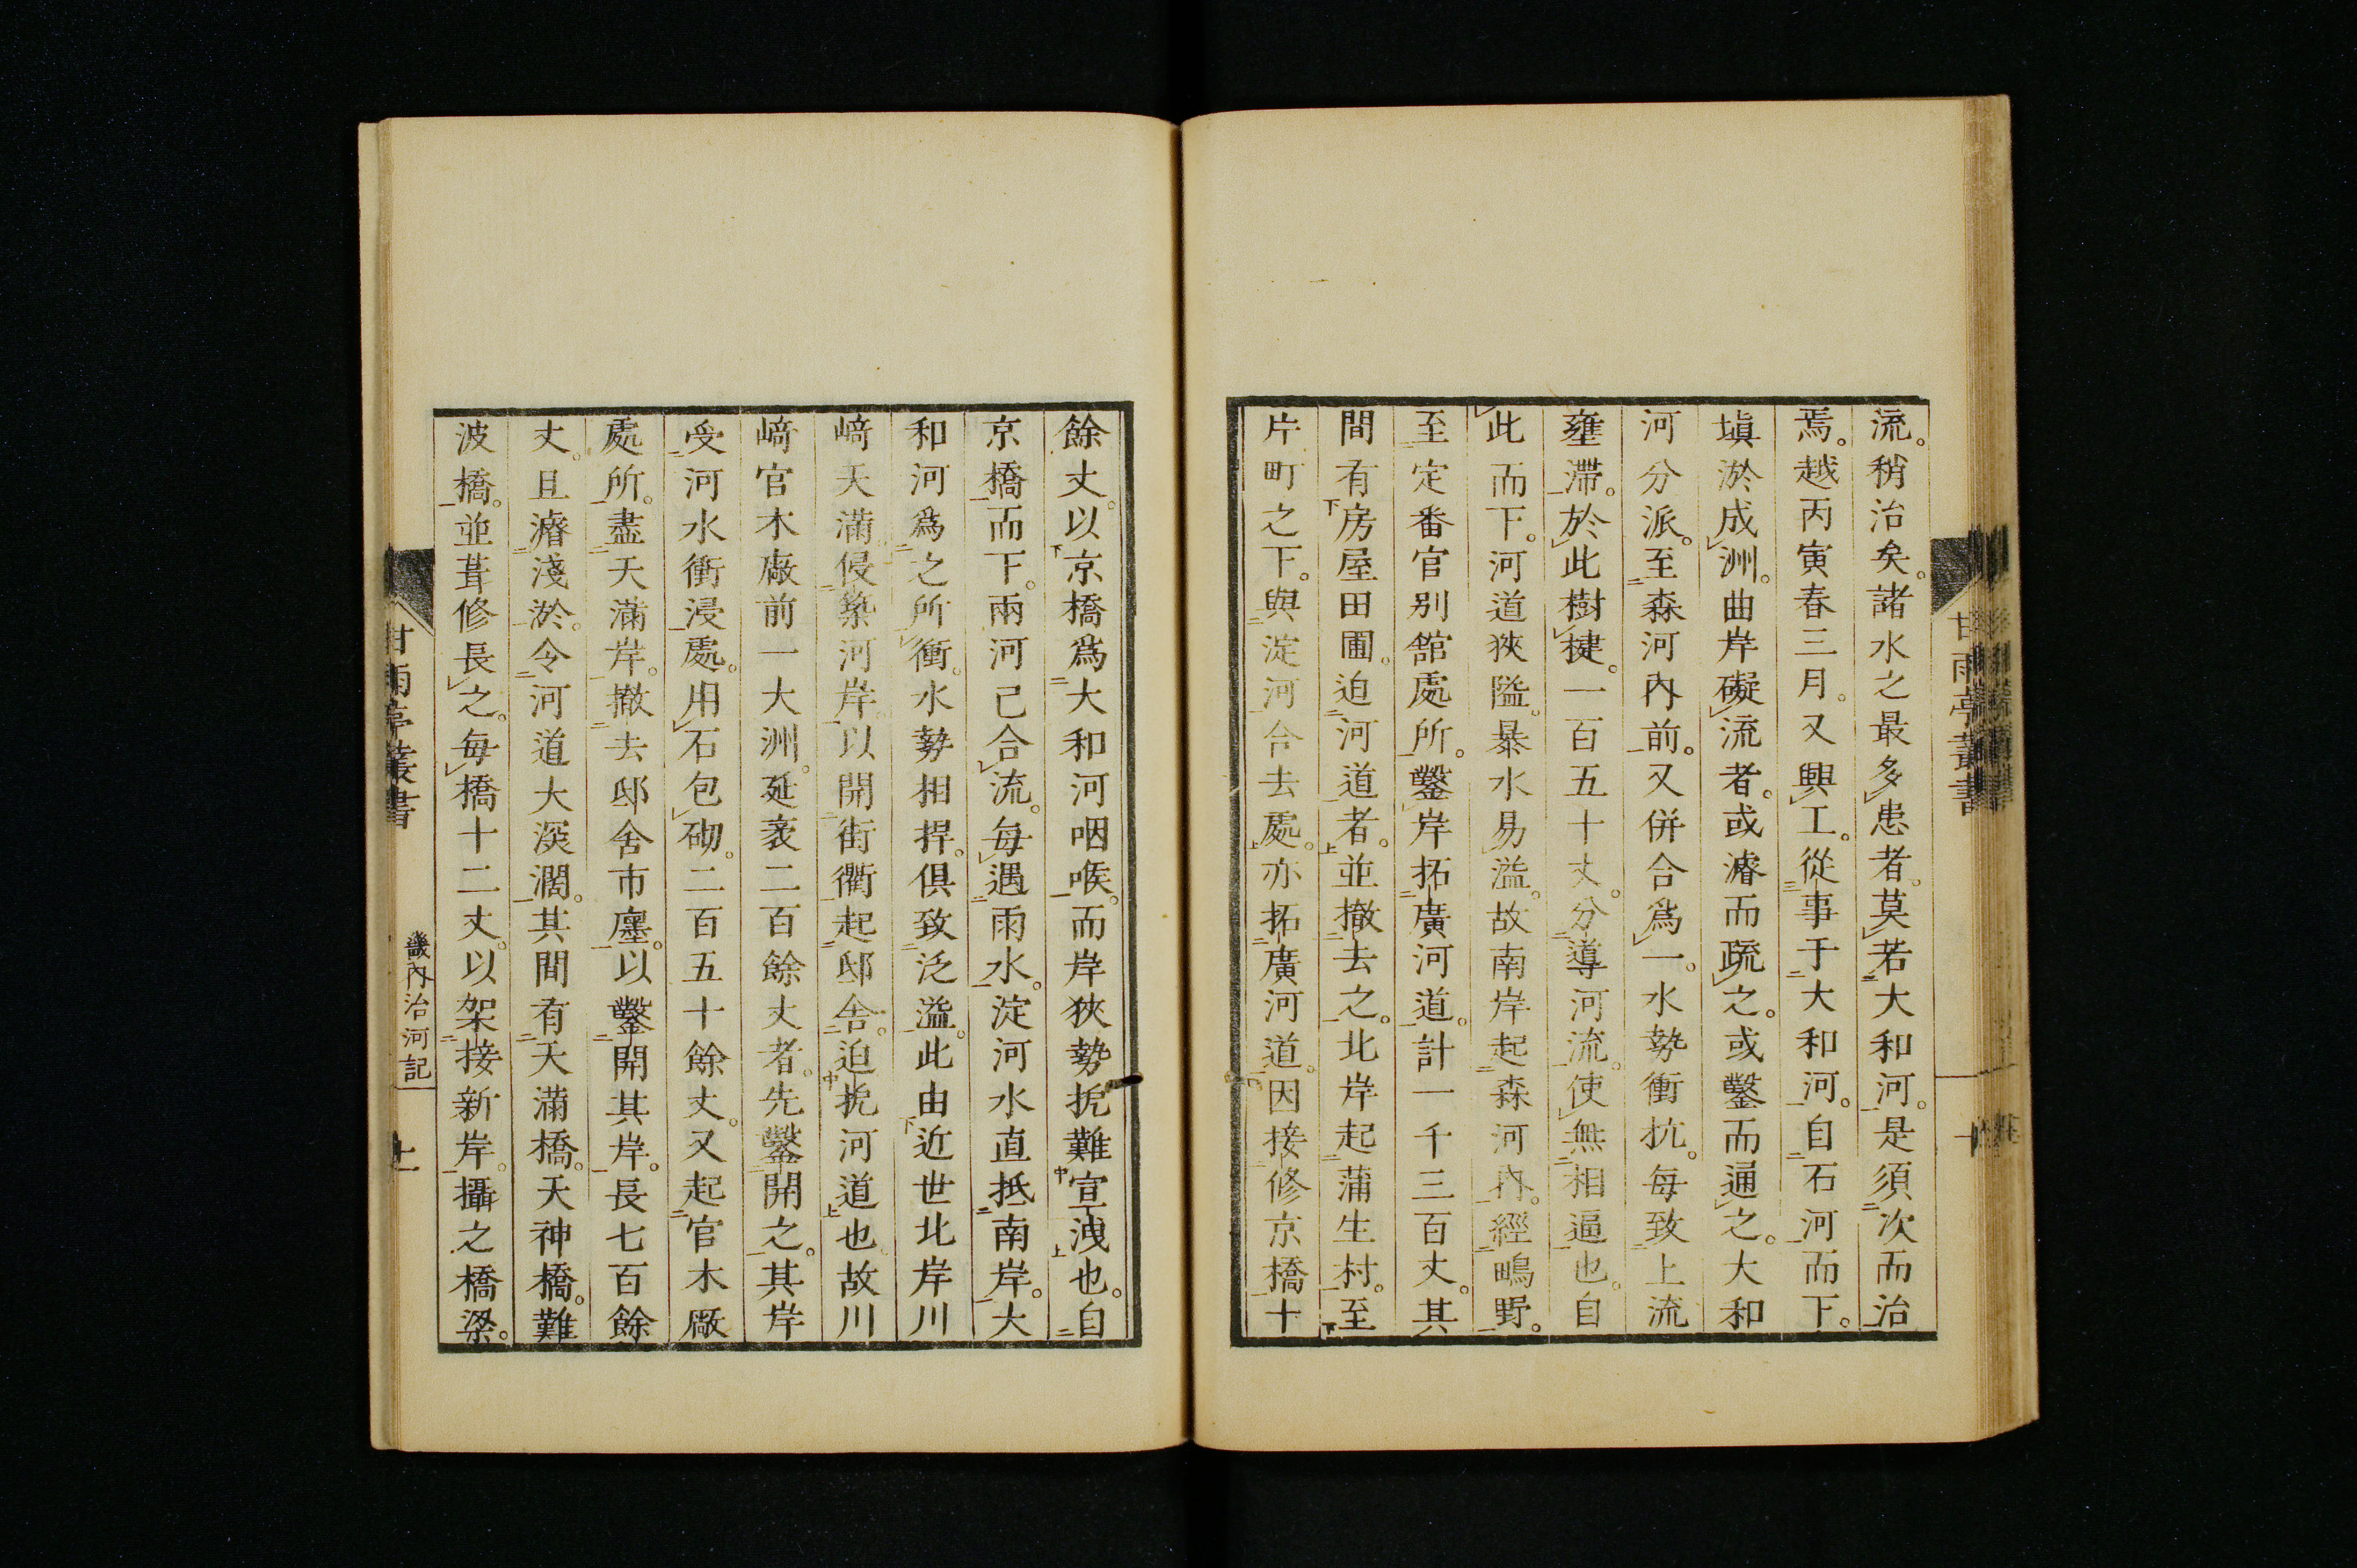 流。稍治矣。諸水之最多患者。莫若大和河。是須次而治
焉。越丙寅春三月。又興工。從事于大和河。自石河而下。
塡淤成洲。曲岸礙流者。或濬而疏之。或鑿而通之。大和
河分派。至森河內前。又併合爲一。水勢衝抗。每致上流
壅滯。於此樹揵。一百五十丈。分導河流。使無相逼也。自
此而下。河道狹隘。暴水易溢。故南岸起森河內。經鴫野。
至定番官別館處所。鑿岸拓廣河道。計一千三百丈。其
間有房屋田圃。迫河道者。並撤去之。北岸起蒲生村。至
片町之下。與淀河合去處。亦拓廣河道。因接修京橋十
餘丈。以京橋爲大和河咽喉。而岸狹勢扼難宣洩也。自
京橋而下。兩河已合流。每遇雨水。淀河水直抵南岸。大
和河爲之所衝。水勢相捍。俱致泛溢。此由近世北岸川
﨑天滿侵築河岸。以開街衢起邸舍。迫扼河道也故川
﨑官木廠前一大洲。延袤二百餘丈者。先鑿開之。其岸
受河水衝浸處。用石包砌。二百五十餘丈。又起官木廠
處所。盡天滿岸。撤去邸舍市廛。以鑿開其岸。長七百餘
丈。且濬淺淤。令河道大深濶。其間有天滿橋。天神橋。難
波橋。並葺修長之。每橋十二丈。以架接新岸。攝之橋梁。
甘雨亭叢書
畿內治河記
甘雨亭叢書
十